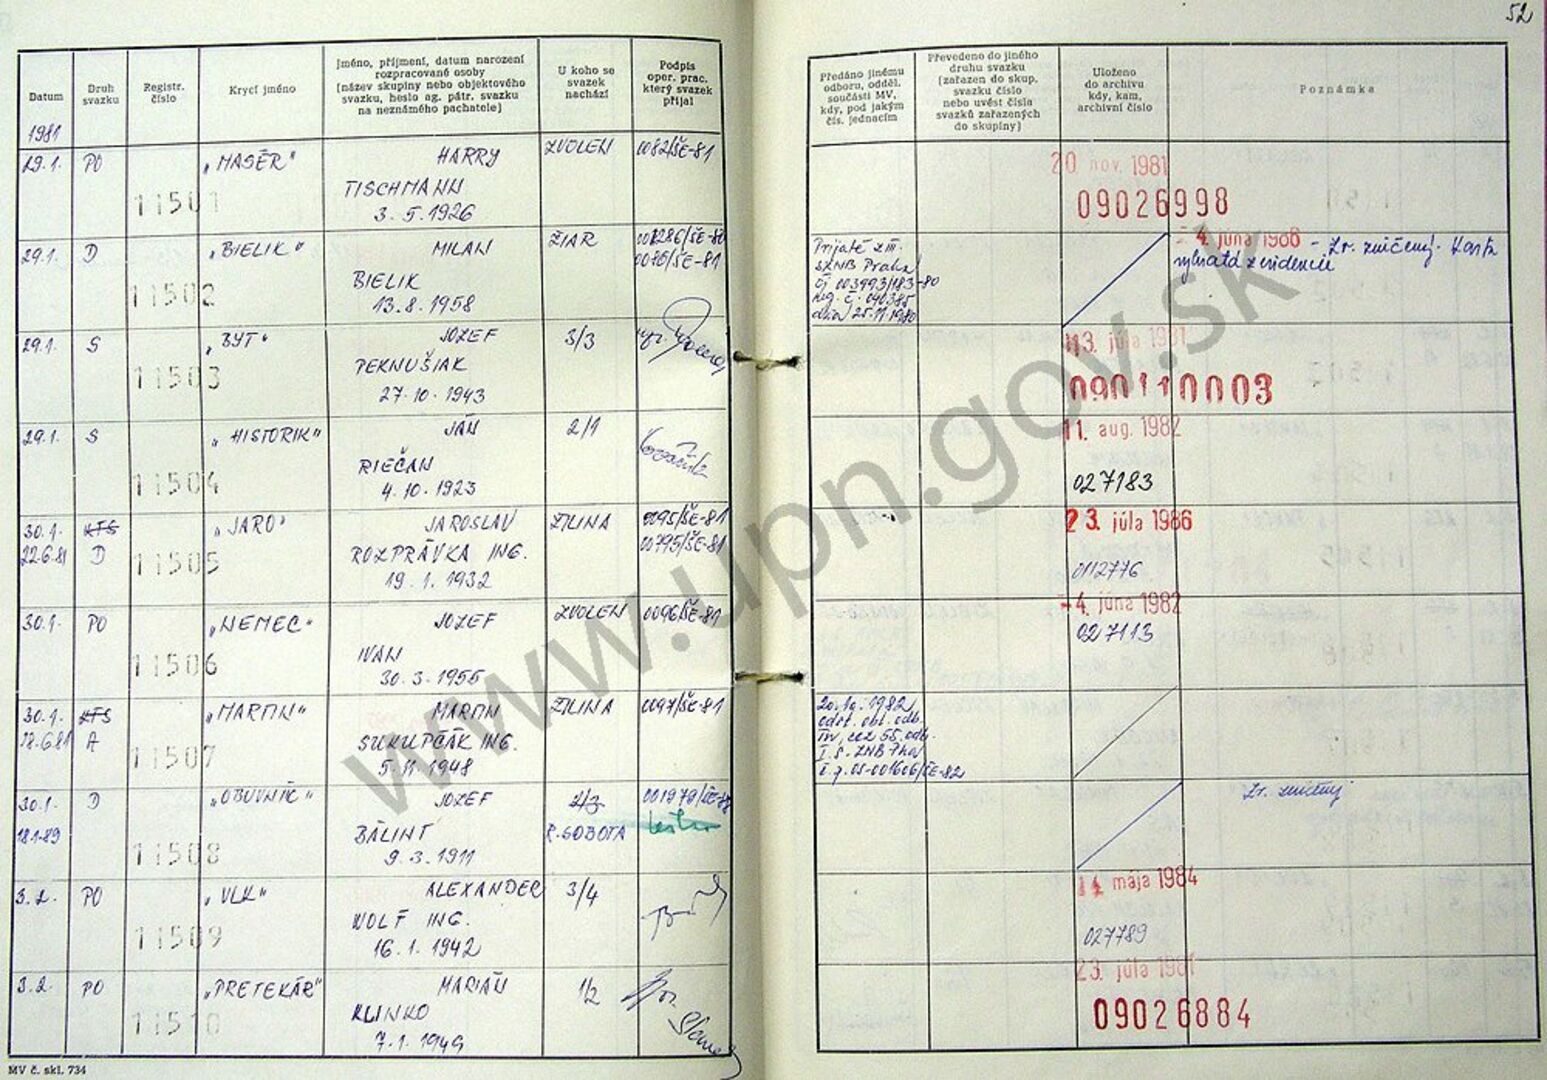 52
Datum
Druh
svazku
Registr.
číslo
Krycí jméno
Jméno, příjmení, datum narození
rozpracované osoby
(název skupiny nebo objektového
svazku, heslo ag. pátr. svazku
na neznámého pachatele)
U koho se
svazek
nachází
Podpis
oper. prac.
který svazek
přijal
Předáno jinému
odboru, odděl.
součásti MV,
kdy, pod jakým
čís. jednacím
Převedeno do jiného
druhu svazku
(zařazen do skup.
svazku číslo
nebo uvést čísla
svazků zařazených
do skupiny)
Uloženo
do archivu
kdy, kam,
archivní číslo
Poznámka
1981
29.1. PO „MASÉR" HARRY ZVOLEN 0082/ŠE-81
11501 TISCHMANN
3. 5. 1926
20 nov. 1981
09026998
29.1. D „BIELIK" MILAN ŽIAR 001286/ŠE-80
0076/ŠE-81
11502 BIELIK
13. 8. 1958
Prijaté z III.
SZNB Praha
čj 003993/183-80
reg. č. 040385
dňa 25.11.1980
- 4. júna 1986 - Zv. zničený. Karta
vybratá z evidencie
29.1. S „BYT" JOZEF 3/3
11503 PEKNUŠIAK
27. 10. 1943
13. júla 1981
090110003
29.1. S „HISTORIK" JÁN 2/1
11504 RIEČAN
4. 10. 1923
11. aug. 1982
027183
30.1. KTS „JARO" JAROSLAV ŽILINA 0095/ŠE-81
22.6.81 D ROZPRÁVKA ING. 00795/ŠE-81
11505 19. 1. 1932
23. júla 1986
0112776
30.1. PO „NEMEC" JOZEF ZVOLEN 0096/ŠE-81
11506 IVAN
30. 3. 1956
- 4. júna 1982
027113
30.1. KTS „MARTIN" MARTIN ŽILINA 0097/ŠE-81
18.6.81 A SUKUPČÁK ING.
11507 5. 11. 1948
20. 10. 1982
odst. obt. odb.
I. S. ZNB Pha
č. j. 05-001606/ŠE-82
30.1. D „OBUVNÍK" JOZEF 2/3 001979/
18.1.89 BÁLINT R. SOBOTA
11508 9. 3. 1911
Zv. zničený
3.2. PO „VLK" ALEXANDER 3/4
11509 WOLF ING.
16. 1. 1942
14 mája 1984
027789
3.2. PO „PRETEKÁR" MARIÁN 1/2
11510 KLINKO
7. 1. 1949
23. júla 1981
09026884
MV č. skl. 734
www.upn.gov.sk